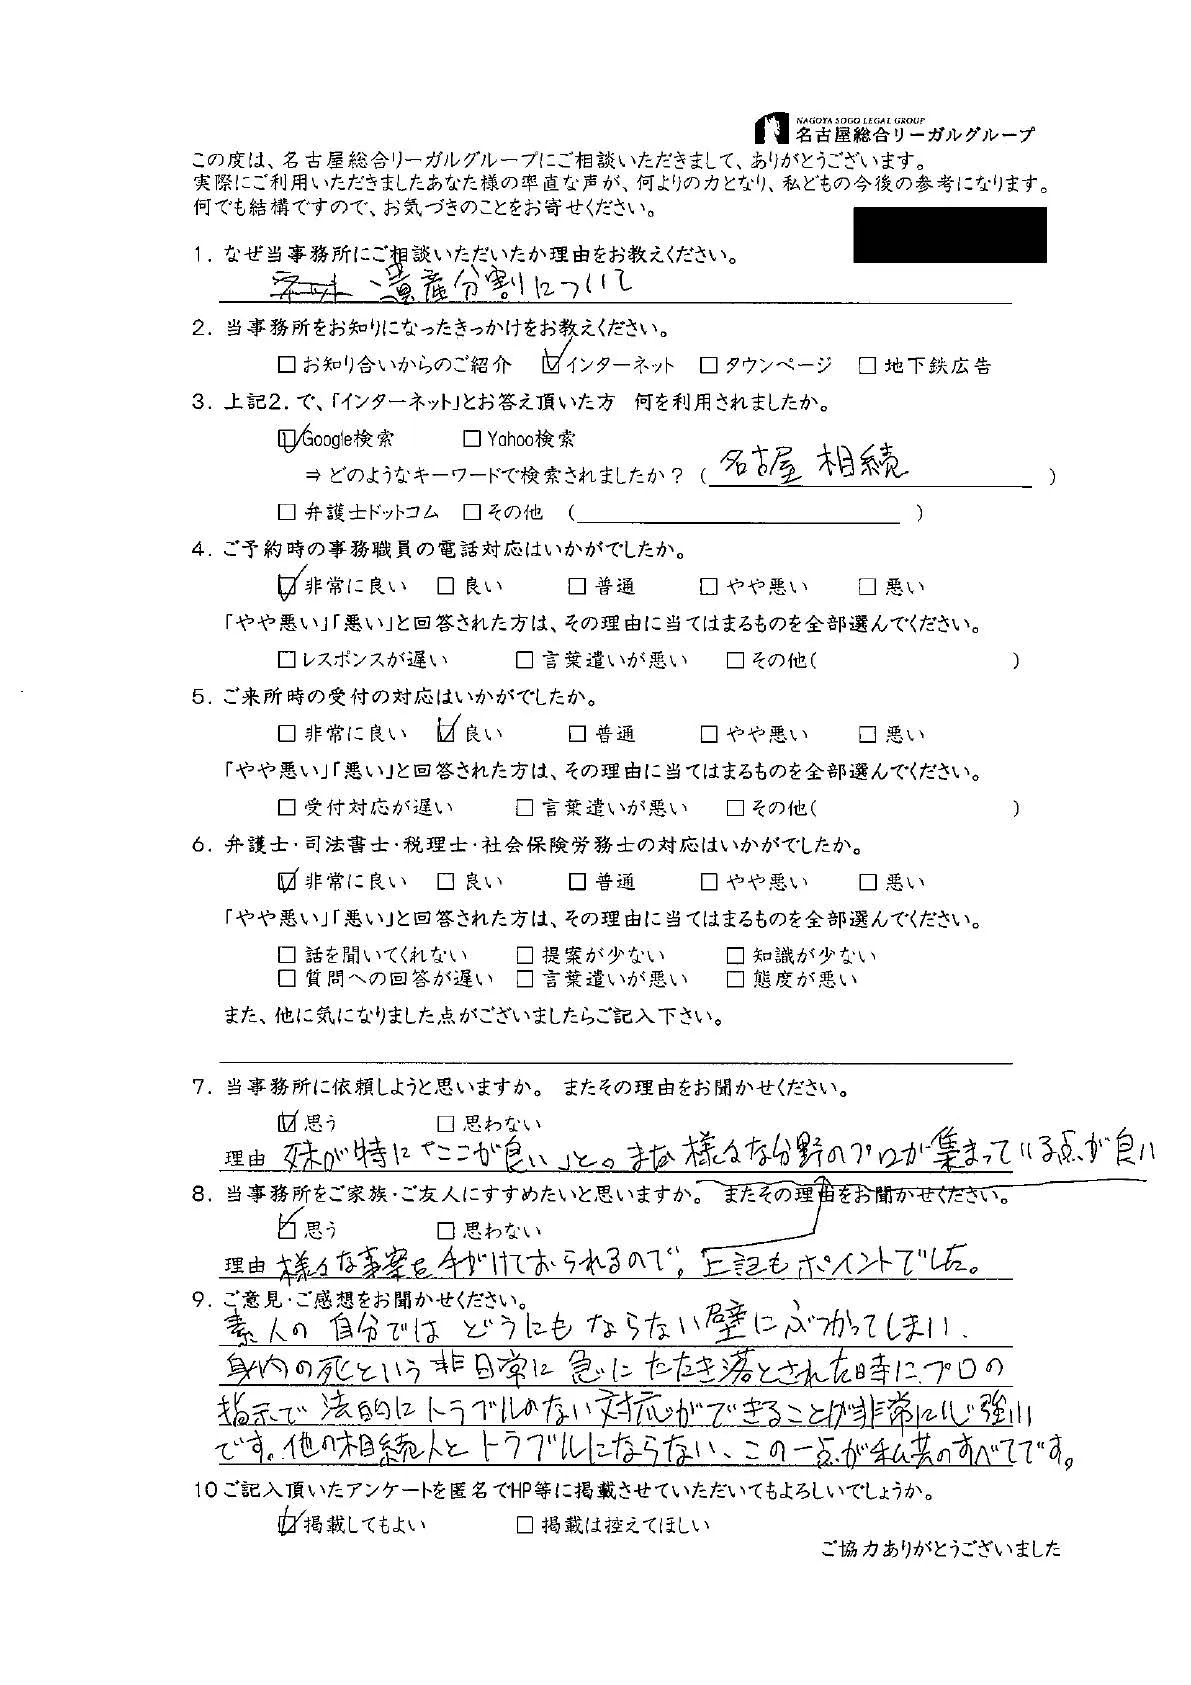 NAGOYA SOGO LEGAL GROUP
名古屋総合リーガルグループ
この度は、名古屋総合リーガルグループにご相談いただきまして、ありがとうございます。
実際にご利用いただきましたあなた様の率直な声が、何よりの力となり、私どもの今後の参考になります。
何でも結構ですので、お気づきのことをお寄せください。
1. なぜ当事務所にご相談いただいたか理由をお教えください。
遺産分割について
2. 当事務所をお知りになったきっかけをお教えください。
□ お知り合いからのご紹介 ☑ インターネット □ タウンページ □ 地下鉄広告
3. 上記2.で、「インターネット」とお答え頂いた方 何を利用されましたか。
☑ Google検索 □ Yahoo検索
⇒ どのようなキーワードで検索されましたか？ ( 名古屋 相続 )
□ 弁護士ドットコム □ その他 ( )
4. ご予約時の事務職員の電話対応はいかがでしたか。
☑ 非常に良い □ 良い □ 普通 □ やや悪い □ 悪い
「やや悪い」「悪い」と回答された方は、その理由に当てはまるものを全部選んでください。
□ レスポンスが遅い □ 言葉遣いが悪い □ その他( )
5. ご来所時の受付の対応はいかがでしたか。
□ 非常に良い ☑ 良い □ 普通 □ やや悪い □ 悪い
「やや悪い」「悪い」と回答された方は、その理由に当てはまるものを全部選んでください。
□ 受付対応が遅い □ 言葉遣いが悪い □ その他( )
6. 弁護士・司法書士・税理士・社会保険労務士の対応はいかがでしたか。
☑ 非常に良い □ 良い □ 普通 □ やや悪い □ 悪い
「やや悪い」「悪い」と回答された方は、その理由に当てはまるものを全部選んでください。
□ 話を聞いてくれない □ 提案が少ない □ 知識が少ない
□ 質問への回答が遅い □ 言葉遣いが悪い □ 態度が悪い
また、他に気になりました点がございましたらご記入下さい。
7. 当事務所に依頼しようと思いますか。 またその理由をお聞かせください。
☑ 思う □ 思わない
理由 妹が特に「ここが良い」と。また様々な分野のプロが集まっている点が良い
8. 当事務所をご家族・ご友人にすすめたいと思いますか。 またその理由をお聞かせください。
☑ 思う □ 思わない
理由 様々な事案を手がけておられるので。上記もポイントでした。
9. ご意見・ご感想をお聞かせください。
素人の自分ではどうにもならない壁にぶつかってしまい、
身内の死という非日常に急にたたき落とされた時に、プロの
指示で法的にトラブルのない対応ができることが非常に心強い
です。他の相続人とトラブルにならない、この一点が私共のすべてです。
10 ご記入頂いたアンケートを匿名でHP等に掲載させていただいてもよろしいでしょうか。
☑ 掲載してもよい □ 掲載は控えてほしい
ご協力ありがとうございました